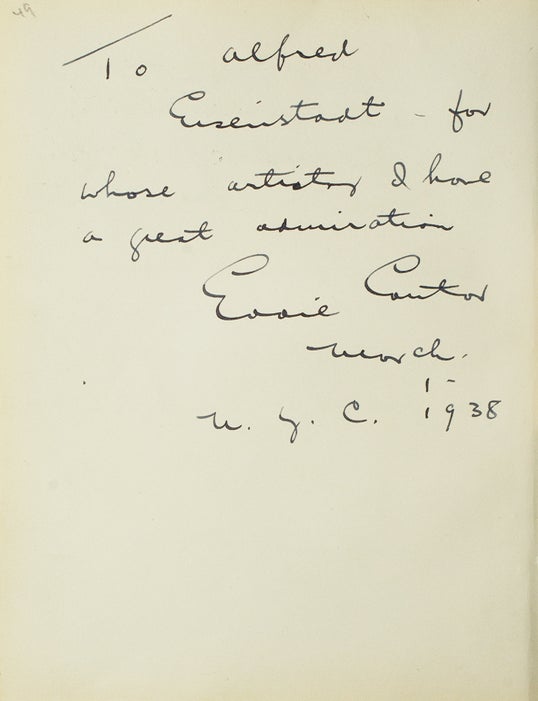 49
To Alfred
Eisenstadt - for
whose artistry I have
a great admiration
Eddie Cantor
March.
1-
N. Y. C. 1938